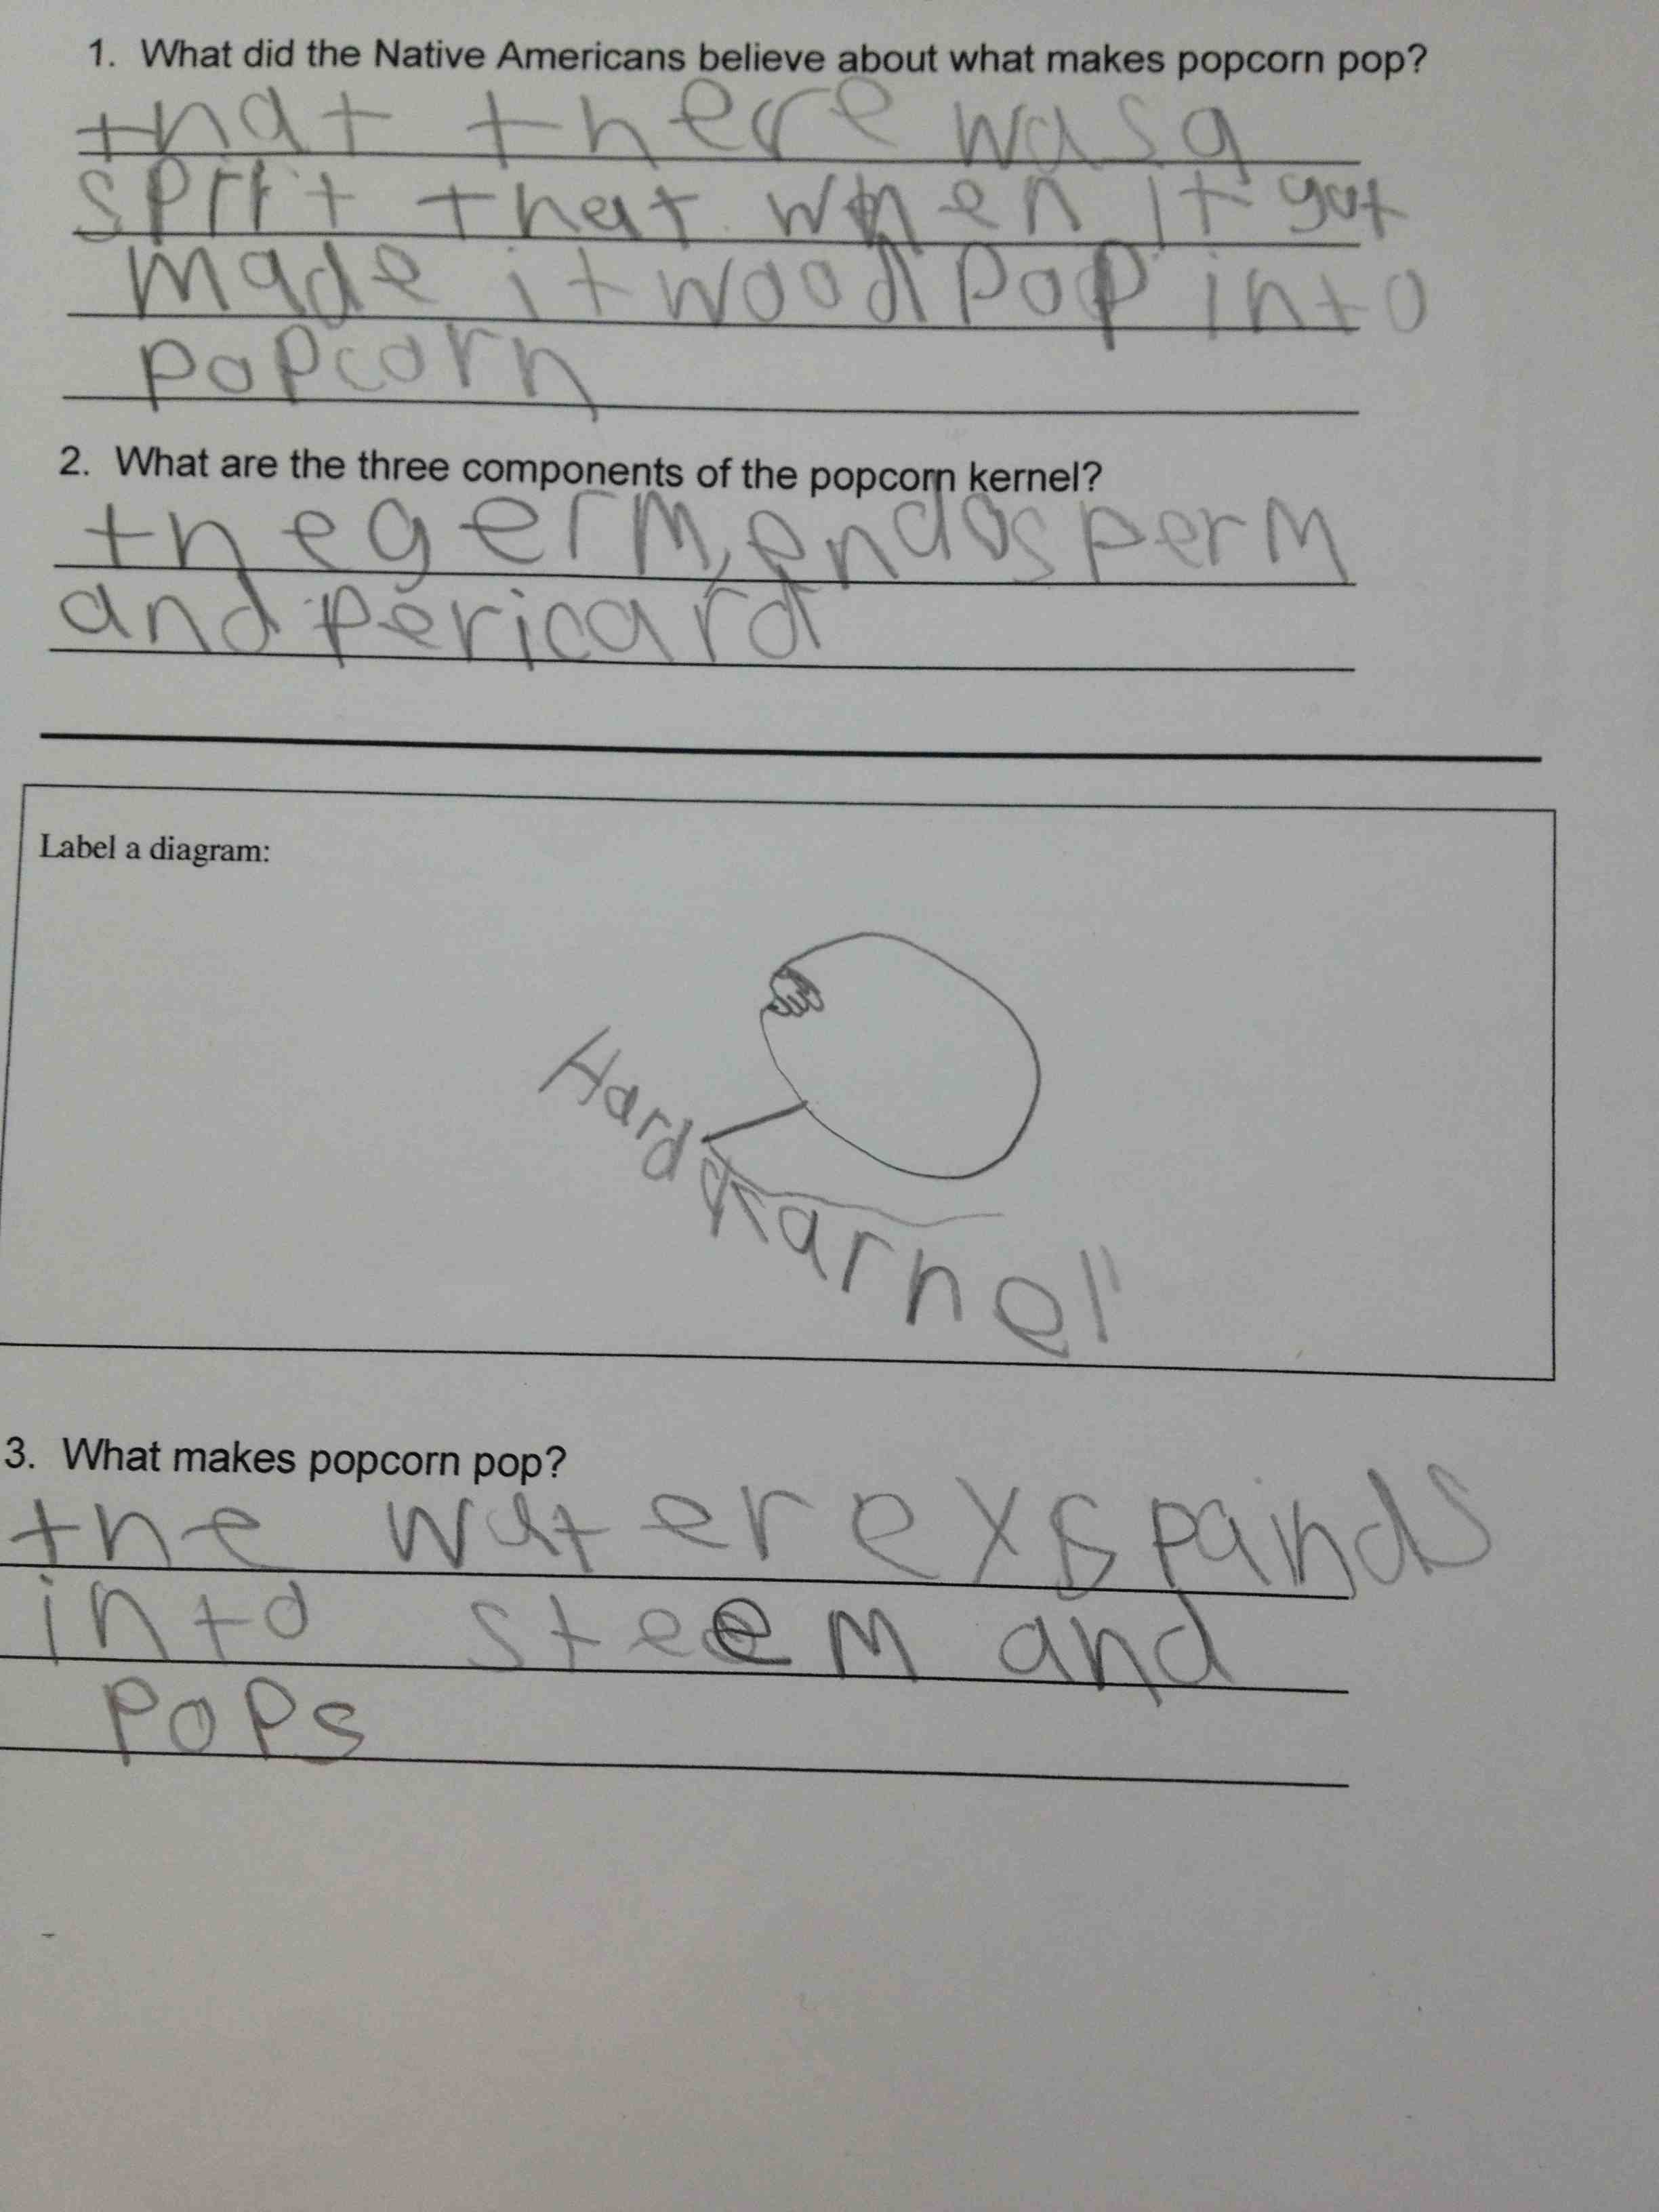 1. What did the Native Americans believe about what makes popcorn pop?
that there was a
sprit that when it got
made it wood pop into
popcorn
2. What are the three components of the popcorn kernel?
the germ, endosperm
and pericard
Label a diagram:
Hard karnel
3. What makes popcorn pop?
the water expainds
into steem and
pops